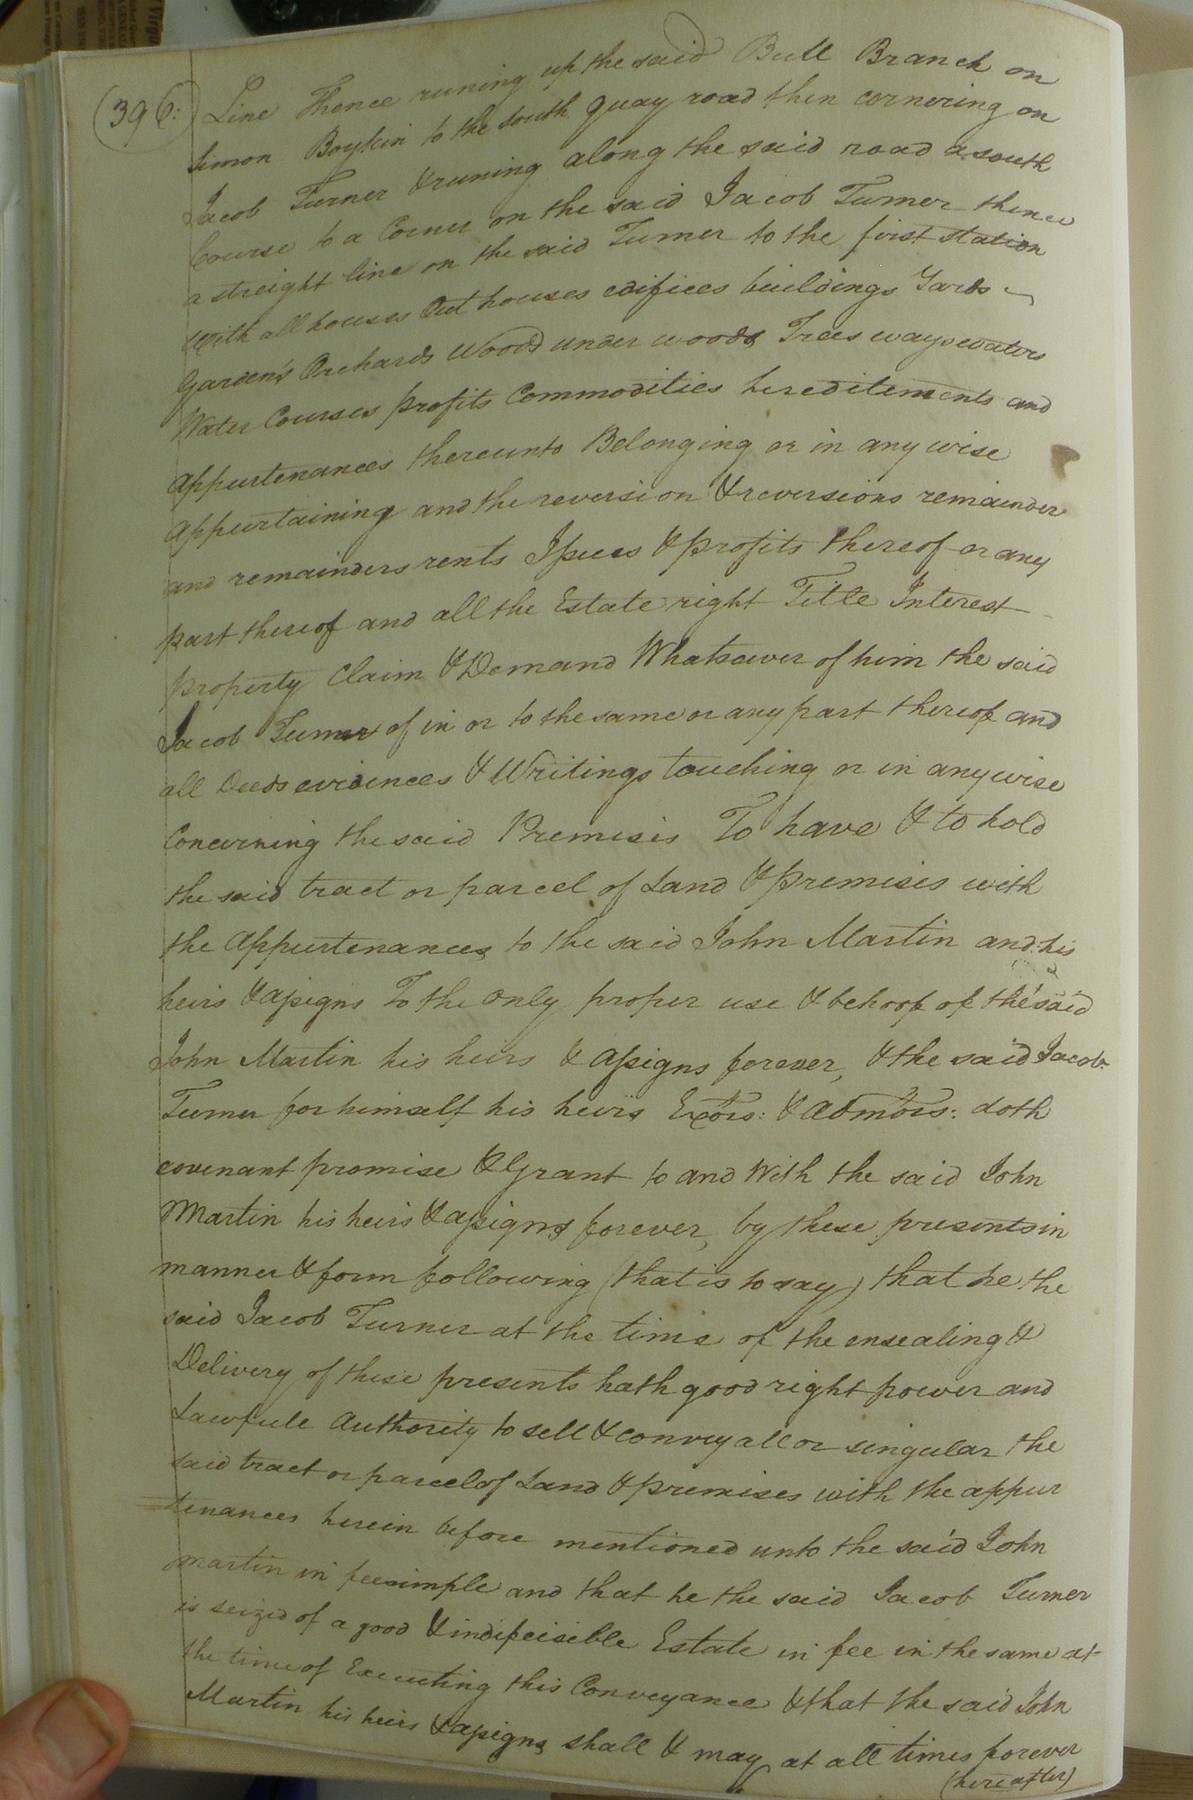 (396:)
Line Thence runing up the said Bull Branch on
Simon Boykin to the South Quay road then cornering on
Jacob Turner & runing along the said road a south
Course to a Corner on the said Jacob Turner thence
a streight line on the said Turner to the first station
With all houses Out houses edifices buildings Yards
Garden's Orchards Woods under woods Trees ways waters
Water Courses profits Commodities hereditements and
Appurtenances thereunto Belonging or in any wise
Appurtaining and the reversion & reversions remainder
and remainders rents Issues & profits thereof or any
part thereof and all the Estate right Title Interest
property Claim & Demand Whatsoever of him the said
Jacob Turner of in or to the same or any part thereof and
all Deeds evidences & Writings touching or in any wise
Concerning the said Premisis To have & to hold
the said tract or parcel of Land & premisis with
the Appurtenances to the said John Martin and his
heirs & assigns To the only proper use & behoof of the said
John Martin his heirs & assigns forever, & the said Jacob
Turner for himself his heirs Exors: & Admors: doth
covenant promise & Grant to and With the said John
Martin his heirs & assigns forever, by these presents in
manner & form following (that is to say) that he the
said Jacob Turner at the time of the ensealing &
Delivery of these presents hath good right power and
Lawfull Authority to sell & convey all or singular the
said tract or parcel of Land & premises with the appur
=tenances herein before mentioned unto the said John
Martin in feesimple and that he the said Jacob Turner
is seized of a good & indifeisible Estate in fee in the same at
the time of Executing this Conveyance & that the said John
Martin his heirs & assigns shall & may at all times forever
(hereafter)